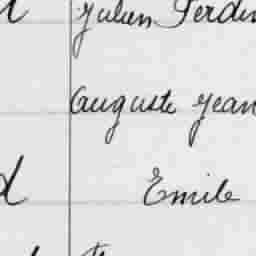 Julien Ferdin
Auguste Jean
Emile